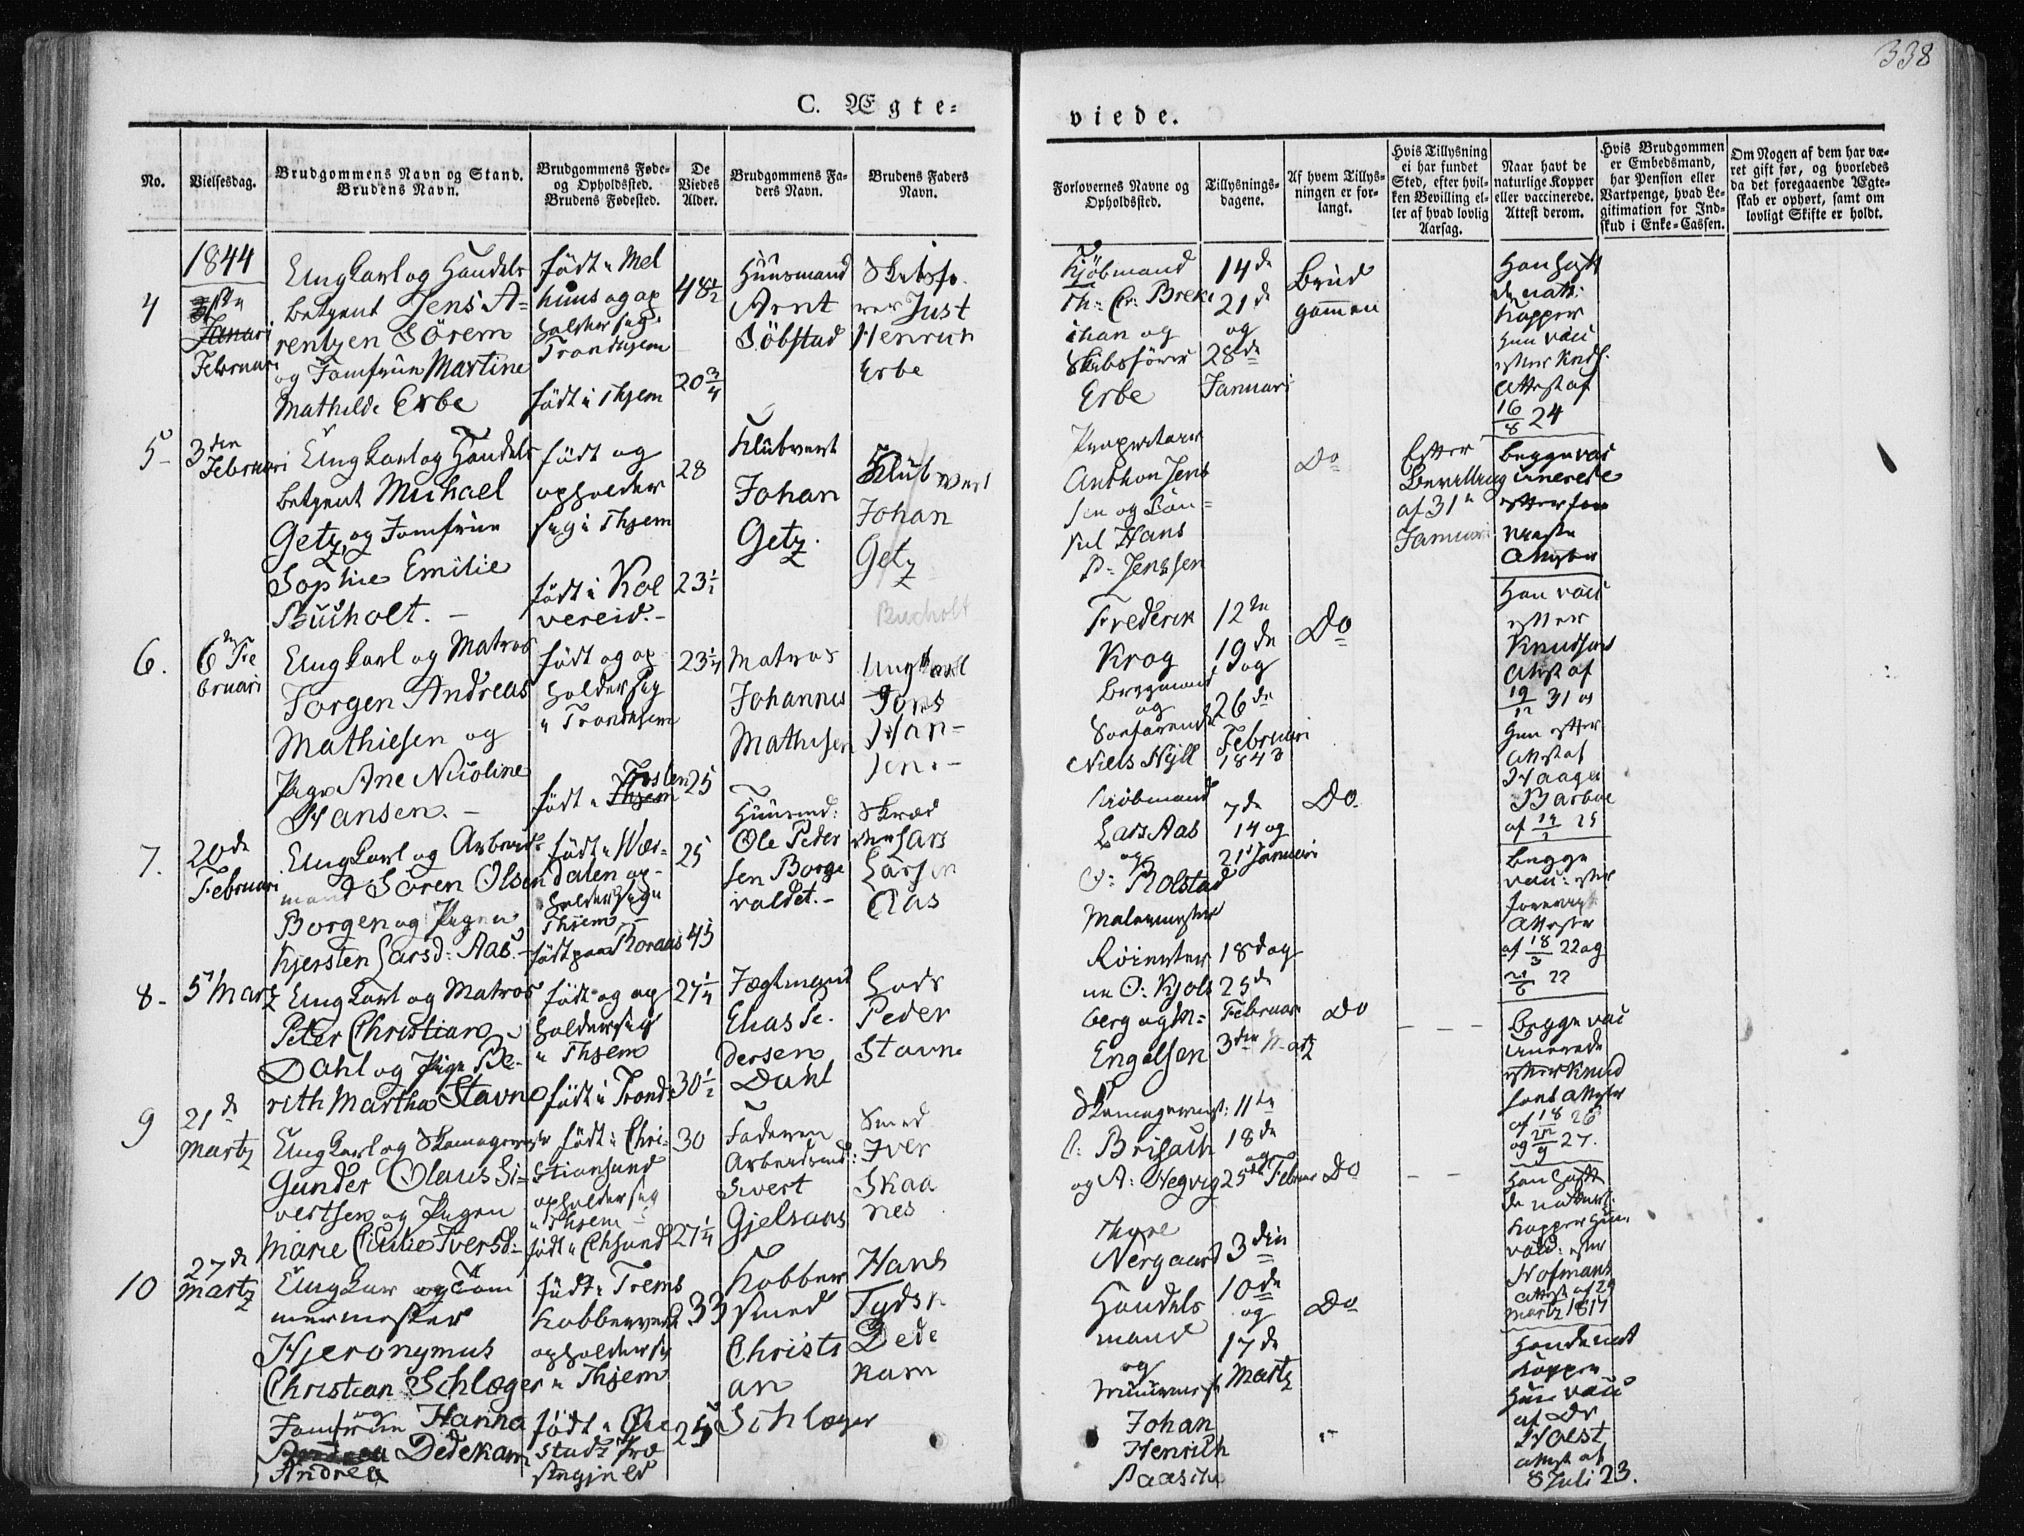 338
C. Ægte=
viede.
No.
Vielsesdag.
Brudgommens Navn og Stand.
Brudens Navn.
Brudgommens Føde=
og Opholdssted.
Brudens Fødested.
De
Viedes
Alder.
Brudgommens Fa=
ders Navn.
Brudens Faders
Navn.
Forlovernes Navne og
Opholdssted.
Tillysnings=
dagene.
Af hvem Tillys=
ningen er for=
langt.
Hvis Tillysning
ei har fundet
Sted, efter hvil=
ken Bevilling el=
ler af hvad lovlig
Aarsag.
Naar havt de
naturlige Kopper
eller vaccinerede.
Attest derom.
Hvis Brudgommen
er Embedsmand,
har Pension eller
Vartpenge, hvad Le=
gitimation for Ind=
skud i Enke=Cassen.
Om Nogen af dem har væ=
ret gift før, og hvorledes
da det foregaaende Ægte=
skab er ophørt, samt om
lovligt Skifte er holdt.
1844
4
Januari
Februari
Ungkarl og Handels
betjent Jens A=
rentzen Sörem
og Jomfrue Martine
Mathilde Erbe
født i Mel
huus og op
holder sig i
Trondhjem
født i Thjem
48½
20¾
Huusmand
Arnt
Söbstad
Skibsfø
rer Just
Henrich
Erbe
Kjøbmand
Th: Cr: Brek
han og
Skibsfører
Erbe
14de
21de
og
28de
Januari
Brud
gommen
Han haft
de natl:
Kopper
Hun vac
efter
Attest af
16/8 24
5
3den
Februari
Ungkarl og Handels
betjent Michael
Getz, og Jomfrue
Sophie Emilie
Bucholt. –
født og
opholder
sig i Thjem
født i Kol
vereid. –
28
23½
Klubvert
Johan
Getz.
Klub vert
Johan
Getz
Bucholt
Proprietair
Anthon Jens
sen og Con=
sul Hans
P: Jenssen
Do
Efter
Bevilling
af 31te
Januari
Begge vac
cinerede
efter
Attester
6.
6te Fe
bruari
Ungkarl og Matros
Jorgen Andreas
Mathiesen og
Pige Ane Nicoline
Hansen. –
født og op
holder sig
i Trondhjem
født i Thjem
23¼
25
Matros
Johannes
Mathisen
Ungkarl
Jens
Han=
sen. –
Frederik
Krog
Brygmand
og
Søefarende
Niels Nyll
12te
19de
og
26de
Februari
1843
Do
Han vac
efter
Knudsens
Attest af
19/12 31 og
Hun efter
Attest af
Haagen
Barboe
af 19/2 25
7.
20de
Februari
Ungkarl og Arbeids=
mand Sören Olsen
Borgen og Pigen
Kjersten Larsd: Aas. –
født i Vær=
dalen op=
holder sig i
Thjem –
født paa Roraas
25
45
Huusmd:
Ole Peder
sen Borge
valdet. –
Skræd
der Lars
Larsen
Aas
Kiøbmand
Lars Aas
og
O: Rolstad
Malermester
7de
14 og
21de Januari
Do
Begge
vac: efter
foreviste
Attester
af 18/3 22 og
22
8 –
5 Martz
Ungkarl og Matros
Peter Christian
Dahl og Pige Be=
reth Martha Stavne
født og op
holder sig
i Thjem
født i Trondh
27¼
30½
Jægtmand
Elias Pe=
dersen
Dahl
Peder
Stavne
ne O: Kjols
berg og M:
Engelsen
18de og
25de
Februari
3die Martz
Do
– – –
Begge vac
cinerede
efter Knud
sens Attester
af 18 26
og 22/9 27.
9
21de
Martz
Ungkarl og Skomagersv
Gunder Olaus Si=
vertsen og Pigen
Marie Cicilie Iversd=
født i Chri=
stiansund
opholder sig
i Thjem
født i Chsund
30
27¼
Faderen
Arbeidsmd:
Sivert
Gjelsans
Smed
Iver
Skaa
nes
Skomagermst:
Brisach
og A: Hegvig
11te
18de
og
25de Febrar
Do
– –
Han haft
de naturl:
Kopper Hun
vac: efter
Hofmans
Attest af 29
Martz 1817
10
27de
Martz
Ungkar og Tøm
mermester
Hjeronymus
Christian Schlæger
og
Jomfrue Hanna
Dedekam
Andrea
født i Trems
Kobberverk
opholder sig
i Thjem
født i
33
25
Kobber
smed
Christi
an
Schlæger
Hans
Tydsk
Dede
kam
Thyre
Nergaard
Handels
mand
og
Muurmest
Johan
Henrich
Paasche
3die
10de
og
17de
Martz
Do
Han de nat
Kopper
Hun vac
af Dr
Holst
Attest af
8 Juli 23.